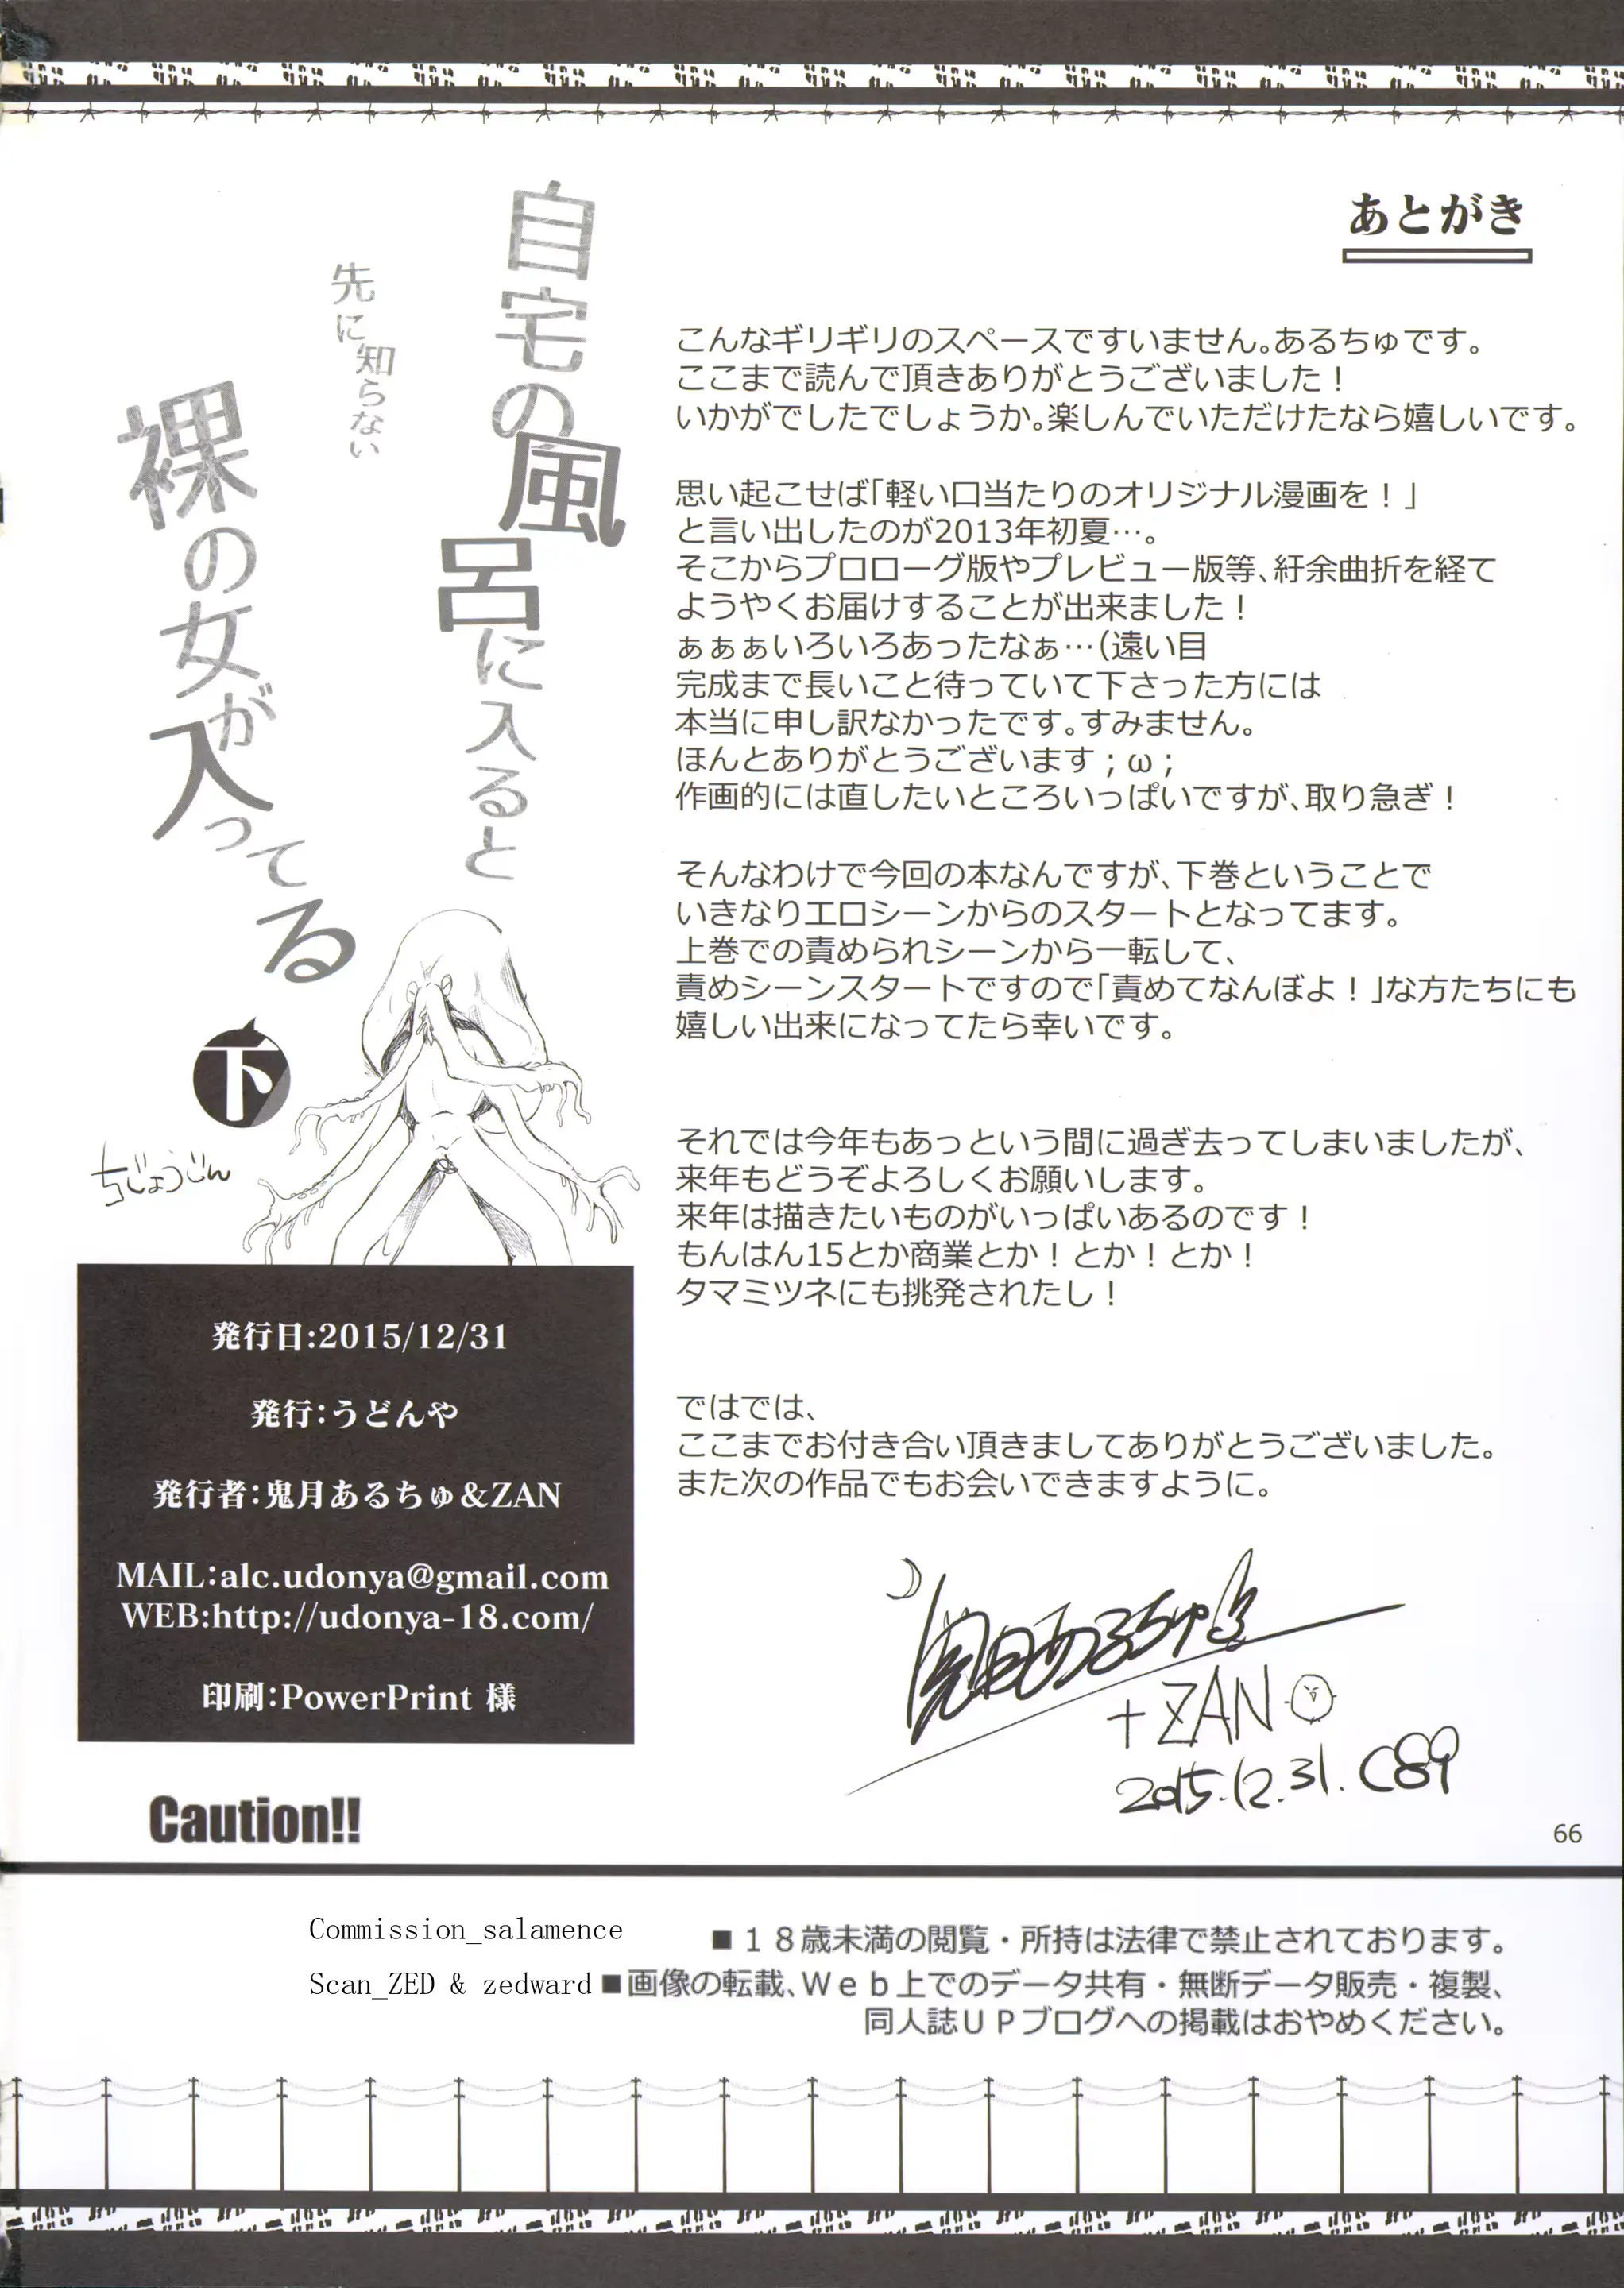 あとがき
こんなギリギリのスペースですいません。あるちゅです。
ここまで読んで頂きありがとうございました！
いかがでしたでしょうか。楽しんでいただけたなら嬉しいです。
思い起こせば「軽い口当たりのオリジナル漫画を！」
と言い出したのが2013年初夏…。
そこからプロローグ版やプレビュー版等、紆余曲折を経て
ようやくお届けすることが出来ました！
ぁぁぁいろいろあったなぁ…（遠い目
完成まで長いこと待っていて下さった方には
本当に申し訳なかったです。すみません。
ほんとありがとうございます；ω；
作画的には直したいところいっぱいですが、取り急ぎ！
そんなわけで今回の本なんですが、下巻ということで
いきなりエロシーンからのスタートとなってます。
上巻での責められシーンから一転して、
責めシーンスタートですので「責めてなんぼよ！」な方たちにも
嬉しい出来になってたら幸いです。
それでは今年もあっという間に過ぎ去ってしまいましたが、
来年もどうぞよろしくお願いします。
来年は描きたいものがいっぱいあるのです！
もんはん15とか商業とか！とか！とか！
タマミツネにも挑発されたし！
ではでは、
ここまでお付き合い頂きましてありがとうございました。
また次の作品でもお会いできますように。
鬼月あるちゅ
+ZAN
2015.12.31. C89
66
自宅の風呂に入ると
先に知らない
裸の女が入ってる
下
ちじょうじん
発行日:2015/12/31
発行：うどんや
発行者：鬼月あるちゅ&ZAN
MAIL:alc.udonya@gmail.com
WEB:http://udonya-18.com/
印刷：PowerPrint 様
Caution!!
Commission_salamence
■１８歳未満の閲覧・所持は法律で禁止されております。
Scan_ZED & zedward
■画像の転載、Ｗｅｂ上でのデータ共有・無断データ販売・複製、
同人誌ＵＰブログへの掲載はおやめください。